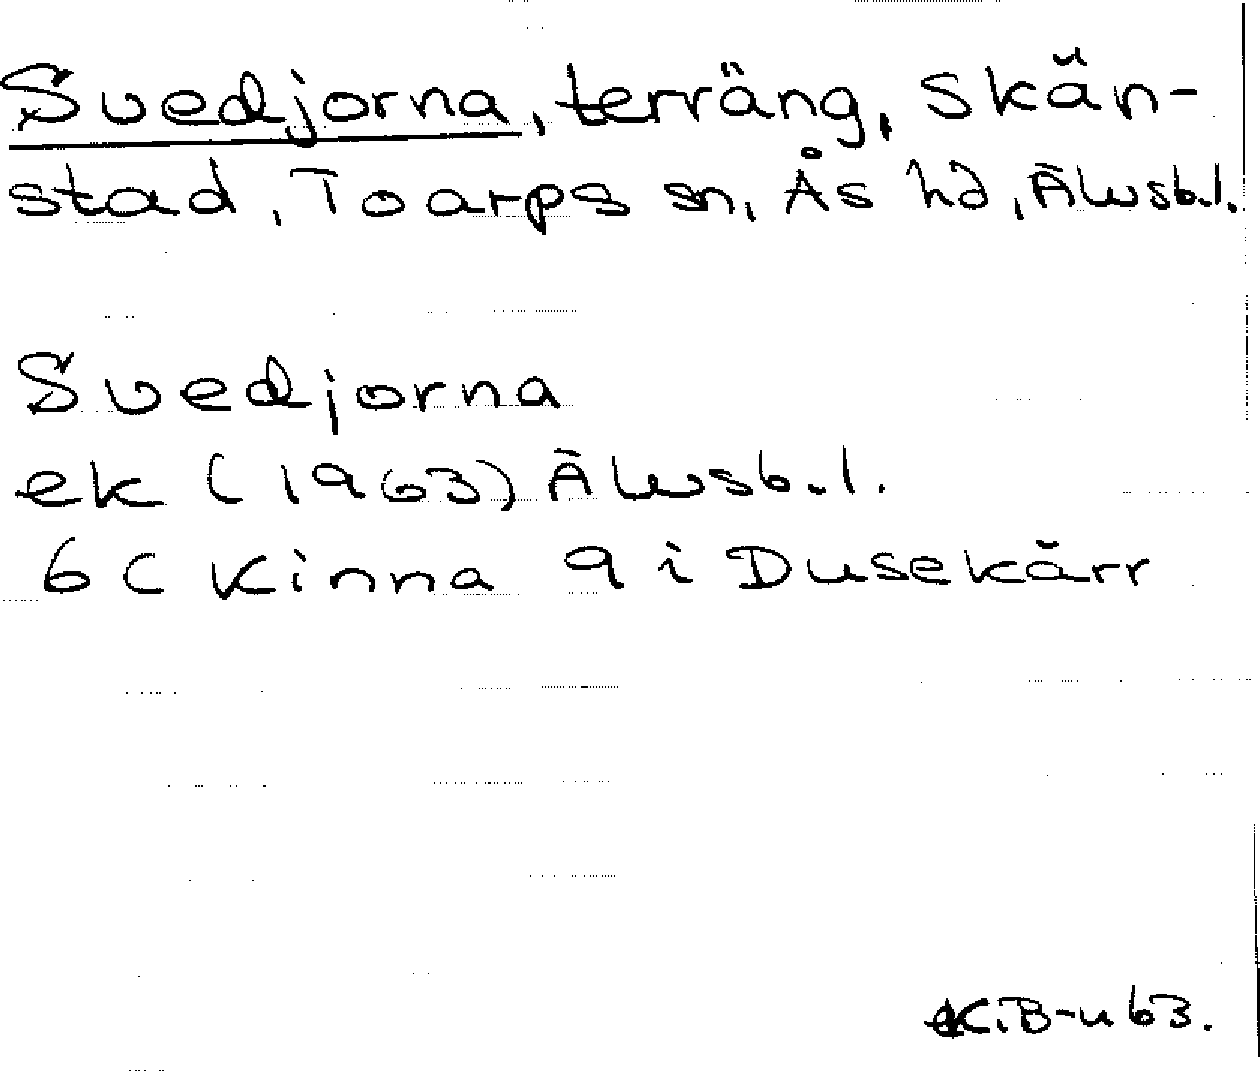 Svedjorna, terräng, Skän-
stad, Toarps sn, Ås hd, Älvsb.l.
Svedjorna
ek (1963) Älvsb.l.
6C Kinna 9 i Dusekärr
63.